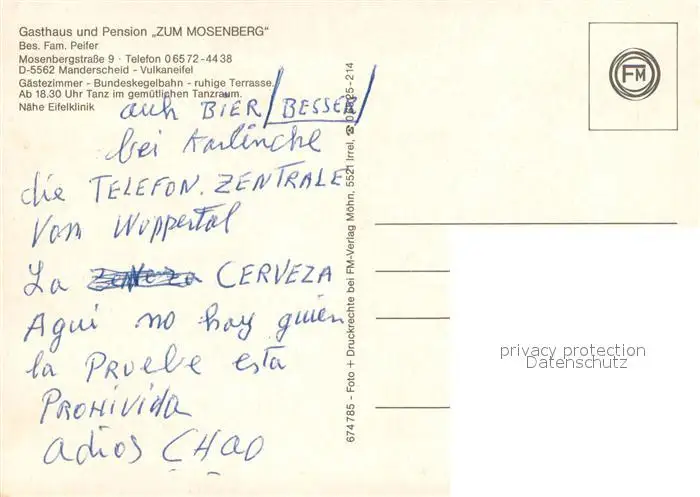 Gasthaus und Pension „ZUM MOSENBERG“
Bes. Fam. Peifer
Mosenbergstraße 9 · Telefon 0 65 72 - 44 38
D-5562 Manderscheid - Vulkaneifel
Gästezimmer - Bundeskegelbahn - ruhige Terrasse.
Ab 18.30 Uhr Tanz im gemütlichen Tanzraum.
Nähe Eifelklinik
auch BIER/BESSER/
bei Karlinche
die TELEFON. ZENTRALE
Vom Wuppertal
La CERVEZA
Aqui no hay quien
la PRUEBE esta
PROHIVIDA
adios CHAO
674 785 - Foto + Druckrechte bei FM-Verlag Möhn, 5521 Irrel,
FM
privacy protection
Datenschutz